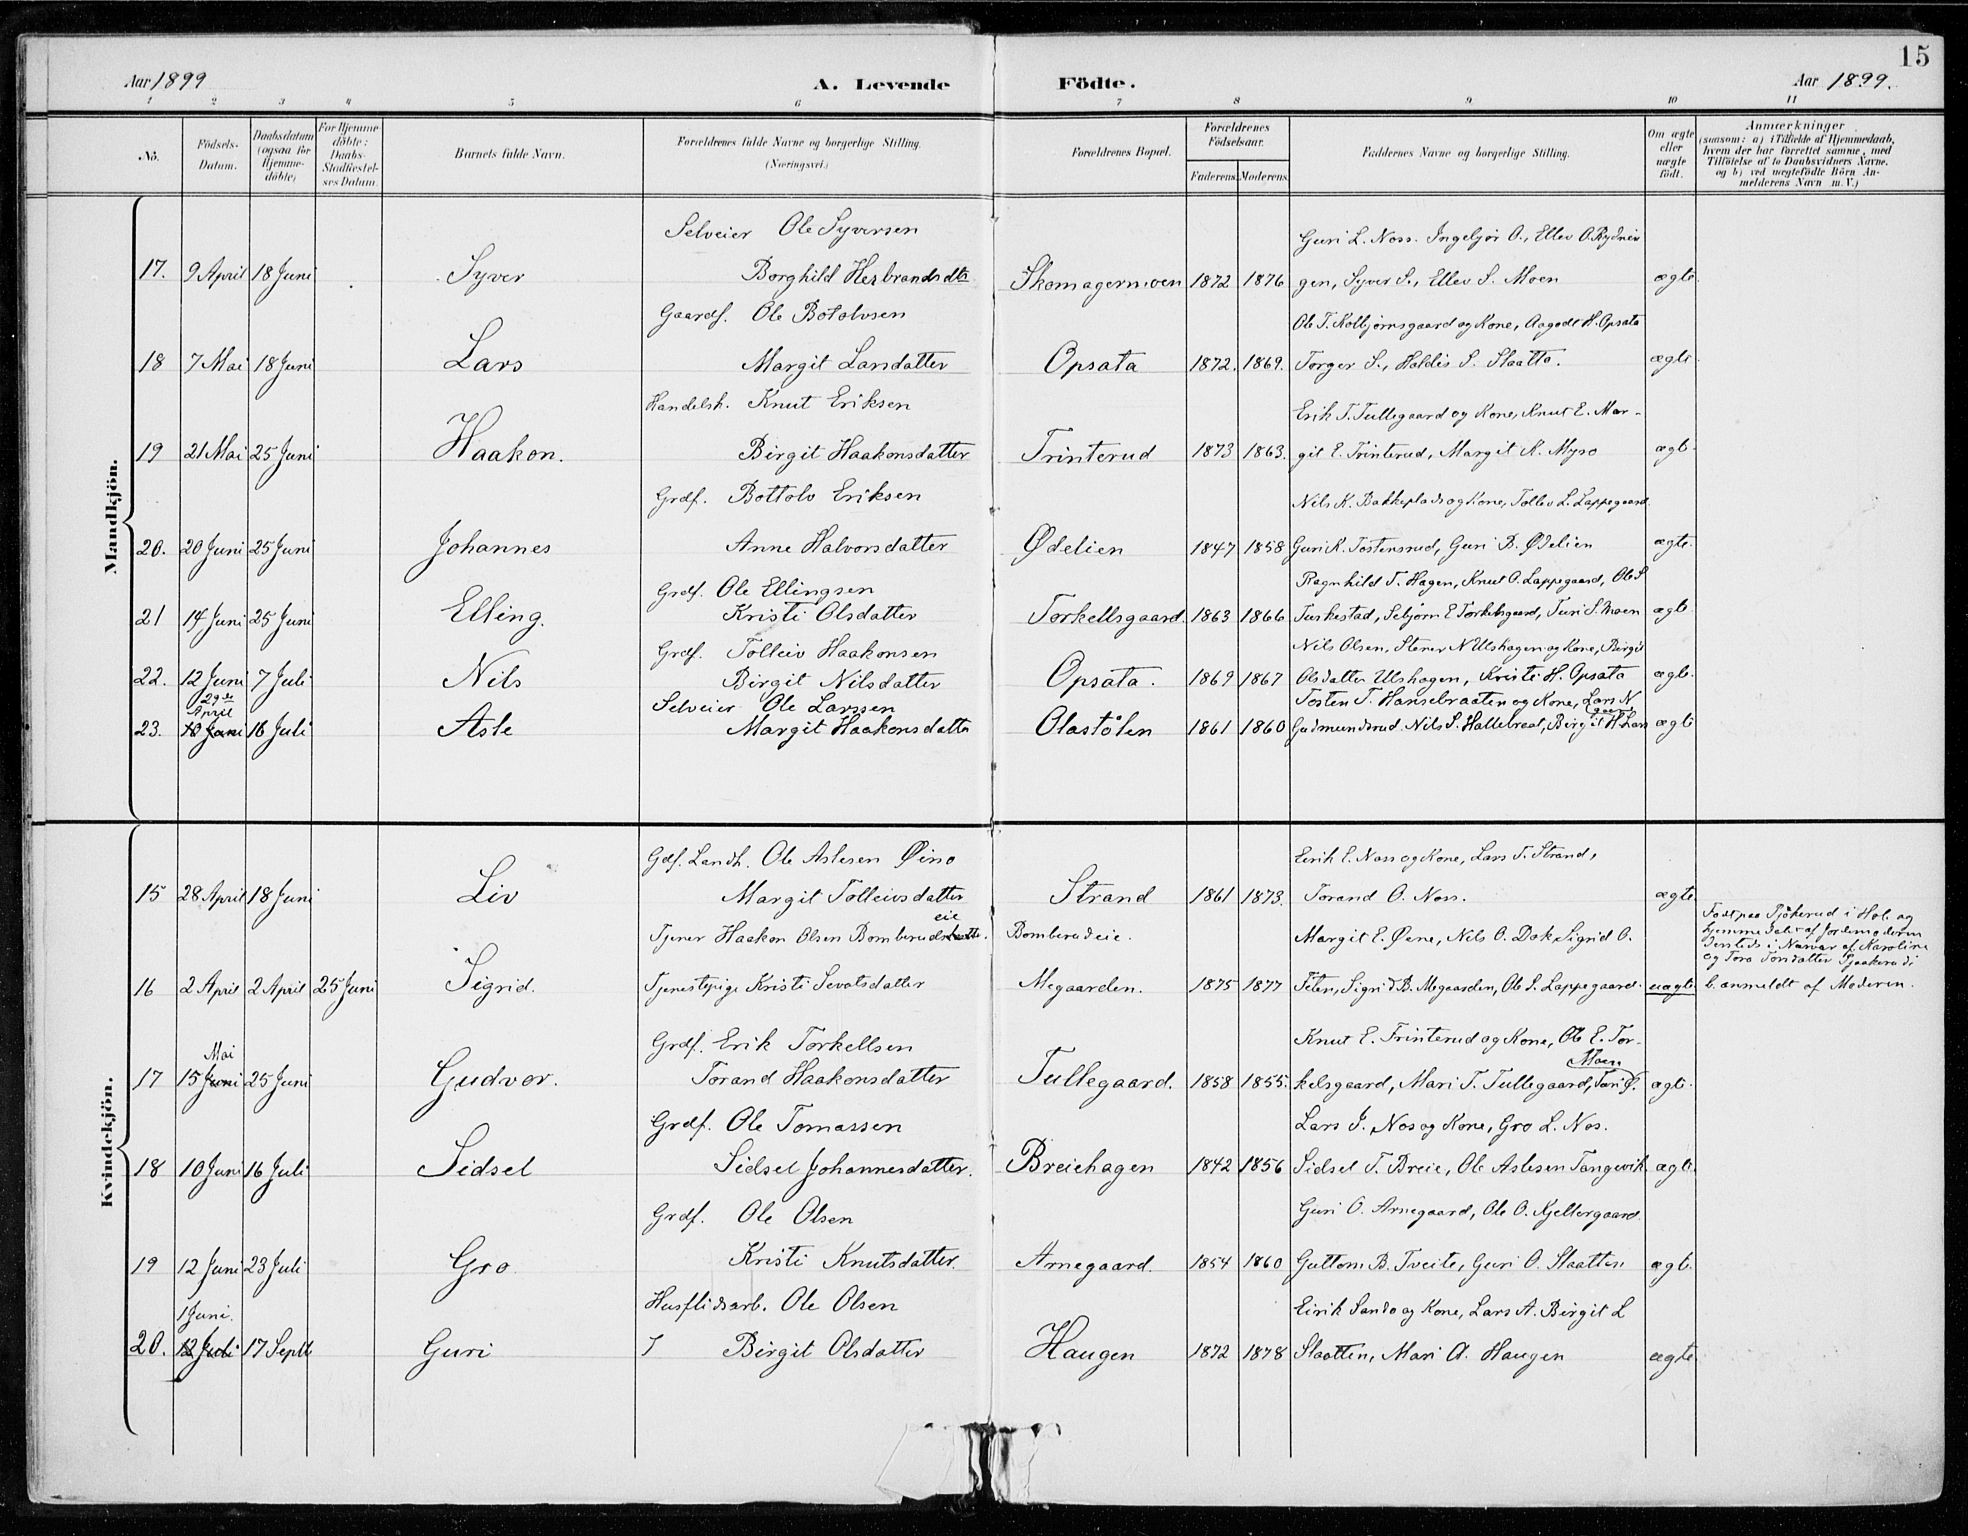 15
Aar 1899
A. Levende Födte.
Aar 1899.
1 2 3 4 5 6 7 8 9 10 11
No.
Födsels-Datum.
Daabsdatum (ogsaa for Hjemme-döbte)
For Hjemme-döbte: Daabs-Stadfæstel-ses Datum.
Barnets fulde Navn.
Forældrenes fulde Navne og borgerlige Stilling.
(Næringsvei.)
Forældrenes Bopæl.
Forældrenes Födselsaar.
Faderens. Moderens.
Faddernes Navne og borgerlige Stilling.
Om ægte eller uægte födt.
Anmærkninger
(saasom: a) i Tilfælde af Hjemmedaab,
hvem der har forrettet samme, med
Tilföielse af to Daabsvidners Navne.
og b) ved uægtefödte Börn An-
melderens Navn m. V.)
Mandkjön.
Selveier Ole Syversen
Guri L. Noss. Ingebjør O., Ellev O.
17. 9 April 18 Juni Syver Borghild Herbrandsdtr Skomagermoen 1872 1876 gen, Syver S., Ellev S. Moen ægte
Gaardf. Ole Botolvsen
Ole T. Kolbjørnsgaard og Kone, Aagodt H. Opsata
18 7 Mai 18 Juni Lars Margit Larsdatter Opsata 1872. 1869. Torger S., Haldis S. Slaatto. ægte
Handelsh. Knut Eriksen
Erik T. Tullegaard og Kone, Knut E. Mar-
19 21 Mai 25 Juni Haakon. Birgit Haakonsdatter Trinterud 1873 1863. git E. Trinterud, Margit K. Myro ægte
Grdf. Bottolv Eriksen
Nils K. Bakkeplads og Kone, Tollev L. Lappegaard
20. 20 Juni 25 Juni Johannes Anne Halvorsdatter Ødelien 1847 1858 Guri K. Tostensrud, Guri B. Ødelien ægte.
Grdf. Ole Ellingsen
Ragnhild T. Hagen, Knut O. Lappegaard, Ole S
21 14 Juni 25 Juni Elling. Kristi Olsdatter Torkellsgaard 1863 1866 Turkestad, Sebjørn E Torkelsgaard, Turi S. Moen ægte
Grdf. Tolleiv Haakonsen
Nils Olsen, Stener N Ulshagen og Kone, Birgit
22. 12 Juni 7 Juli Nils Birgit Nilsdatter Opsata. 1869 1867 Olsdatter Ulshagen, Kristi H. Opsata ægte
29de April
Selveier Ole Larssen
Tosten T. Hansebraaten og Kone, Lars N
23. 10 Juni 16 Juli Asle Margit Haakonsdatte Olastölen 1861 1860 Gudmundsrud Nils S. Hallebraat, Birgit H. Lars ægte
Kvindekjön.
Gdf. Landh. Ole Aslesen Øino
Eirik E. Noss og Kone, Lars T. Strand,
15 28 April 18 Juni Liv Margit Tolleivsdatter Strand 1861 1873. Torand O. Noss. ægte
Tjener Haakon Olsen Bomberudeie.
Bomberudeie.
Margit E. Øene, Nils O. Dok, Sigrid O.
Født paa Tjökerud i Hol og
hjemmedøbt af Jordemoderen
dersteds i Nærvær af Karoline
og Tora Torsdatter Tjaakerud
16 2 April 2 April 25 Juni Sigrid. Tjenestepige Kristi Sevatsdatter Megaarden. 1875 1877 Feten, Sigrid B. Megaarden, Ole S. Lappegaard. uægte b. anmeldt af Moderen.
Grdf. Erik Torkellsen
Knut E. Trinterud og Kone, Ole E. Tor-
Mai
Moen
17 15 Juni 25 Juni Gudvor. Torand Haakonsdatter Tullegaard. 1858 1855. kelsgaard, Mari T. Tullegaard, Turi Ø. ægte.
Grdf. Ole Tomassen
Lars J. Nos og Kone, Gro L. Nos.
18 10 Juni 16 Juli Sidsel Sidsel Johannesdatter. Breiehagen 1842 1856 Sidsel T. Breie, Ole Aslesen Tangevik ægte.
Grdf. Ole Olsen
Guri O. Arnegaard, Ole O. Kjellergaard.
19 12 Juni 23 Juli Gro. Kristi Knutsdatter. Arnegaard. 1854 1860 Guttom B. Tveite, Guri O. Slaatten ægte.
1 Juni.
Husflidsarb. Ole Olsen
Eirik Sando og Kone, Lars A. Birgit L
20. 12 Juli 17 Septb Guri Birgit Olsdatter Haugen 1872 1878 Slaatten, Mari A. Haugen ægte